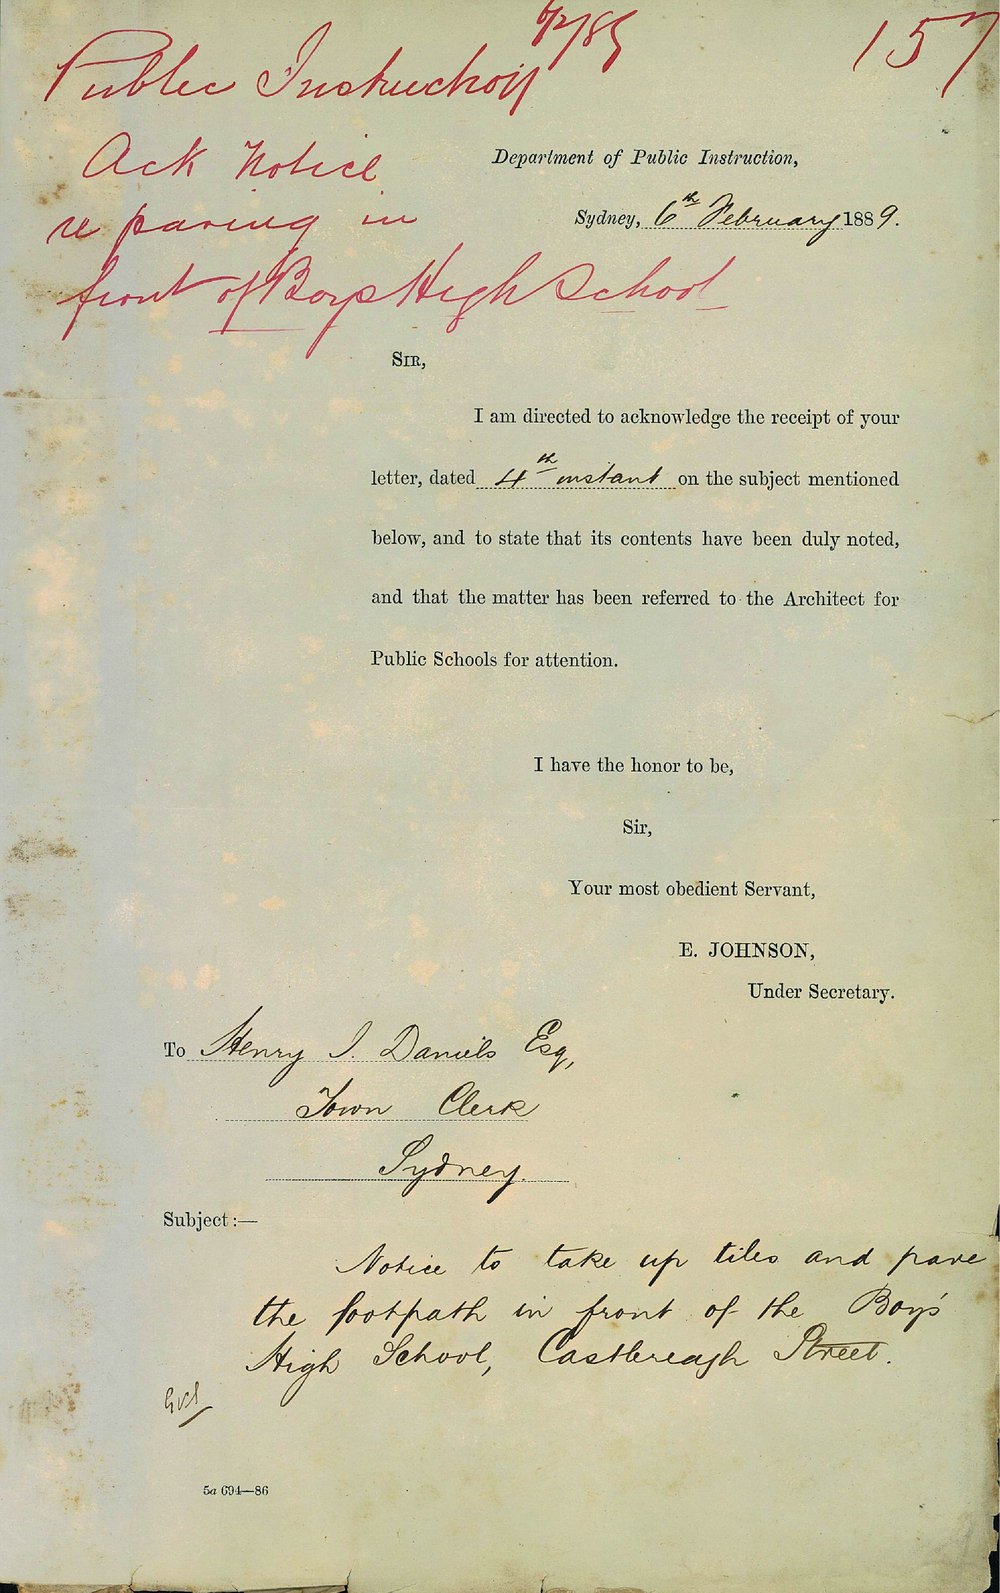 6/2/89
157
Public Instruction
Ack Notice
re paving in
front of Boys High School
Department of Public Instruction,
Sydney, 6th February 1889.
SIR,
I am directed to acknowledge the receipt of your
letter, dated 4th instant on the subject mentioned
below, and to state that its contents have been duly noted,
and that the matter has been referred to the Architect for
Public Schools for attention.
I have the honor to be,
Sir,
Your most obedient Servant,
E. JOHNSON,
Under Secretary.
To Henry J. Daniels Esq,
Town Clerk
Sydney.
Subject:—
Notice to take up tiles and pave
the footpath in front of the Boys'
High School, Castlereagh Street.
5a 694—86